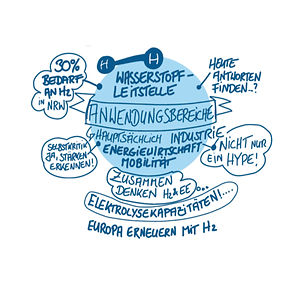 H H
30%
BEDARF
AN H2
IN NRW!
WASSERSTOFF-
LEITSTELLE
HEUTE
ANTWORTEN
FINDEN..?
ANWENDUNGSBEREICHE
HAUPTSÄCHLICH INDUSTRIE
ENERGIEWIRTSCHAFT
MOBILITÄT
SELBSTKRITIK
JA, STÄRKEN
ERKENNEN!
NICHT NUR
EIN HYPE!
ZUSAMMEN
DENKEN H2&EE
ELEKTROLYSEKAPAZITÄTEN!....
EUROPA ERNEUERN MIT H2